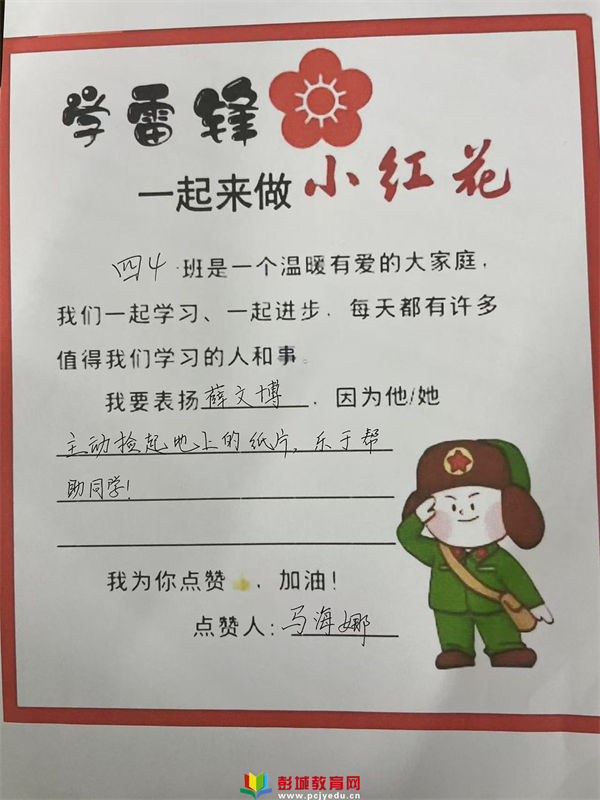 学雷锋
一起来做小红花
四4班是一个温暖有爱的大家庭,
我们一起学习、一起进步,每天都有许多
值得我们学习的人和事。
我要表扬薛文博,因为他/她
主动捡起地上的纸片,乐于帮
助同学!
我为你点赞👍,加油!
点赞人:马海娜
彭城教育网
www.pcjyedu.cn